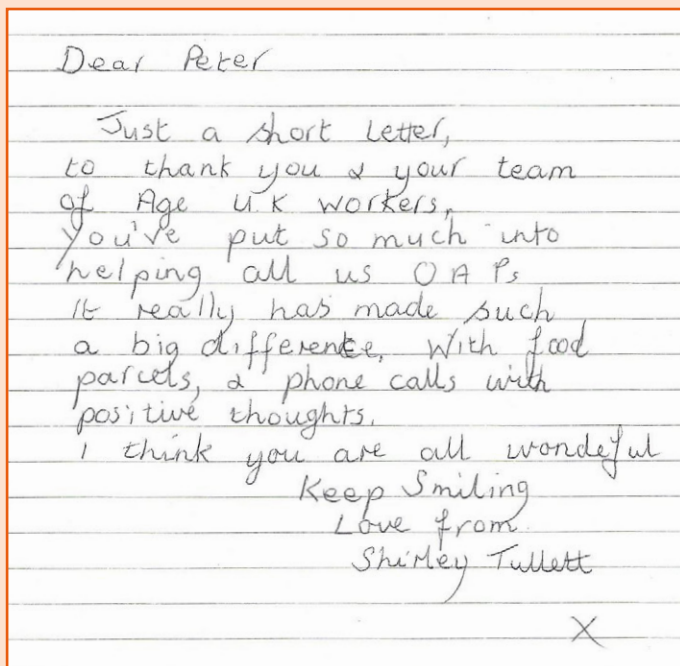 Dear Peter
Just a short letter,
to thank you & your team
of Age U.K workers,
you've put so much into
helping all us OAPs
It really has made such
a big difference, With food
parcels, & phone calls with
positive thoughts.
I think you are all wondeful
Keep Smiling
Love from
Shirley Tullett
X